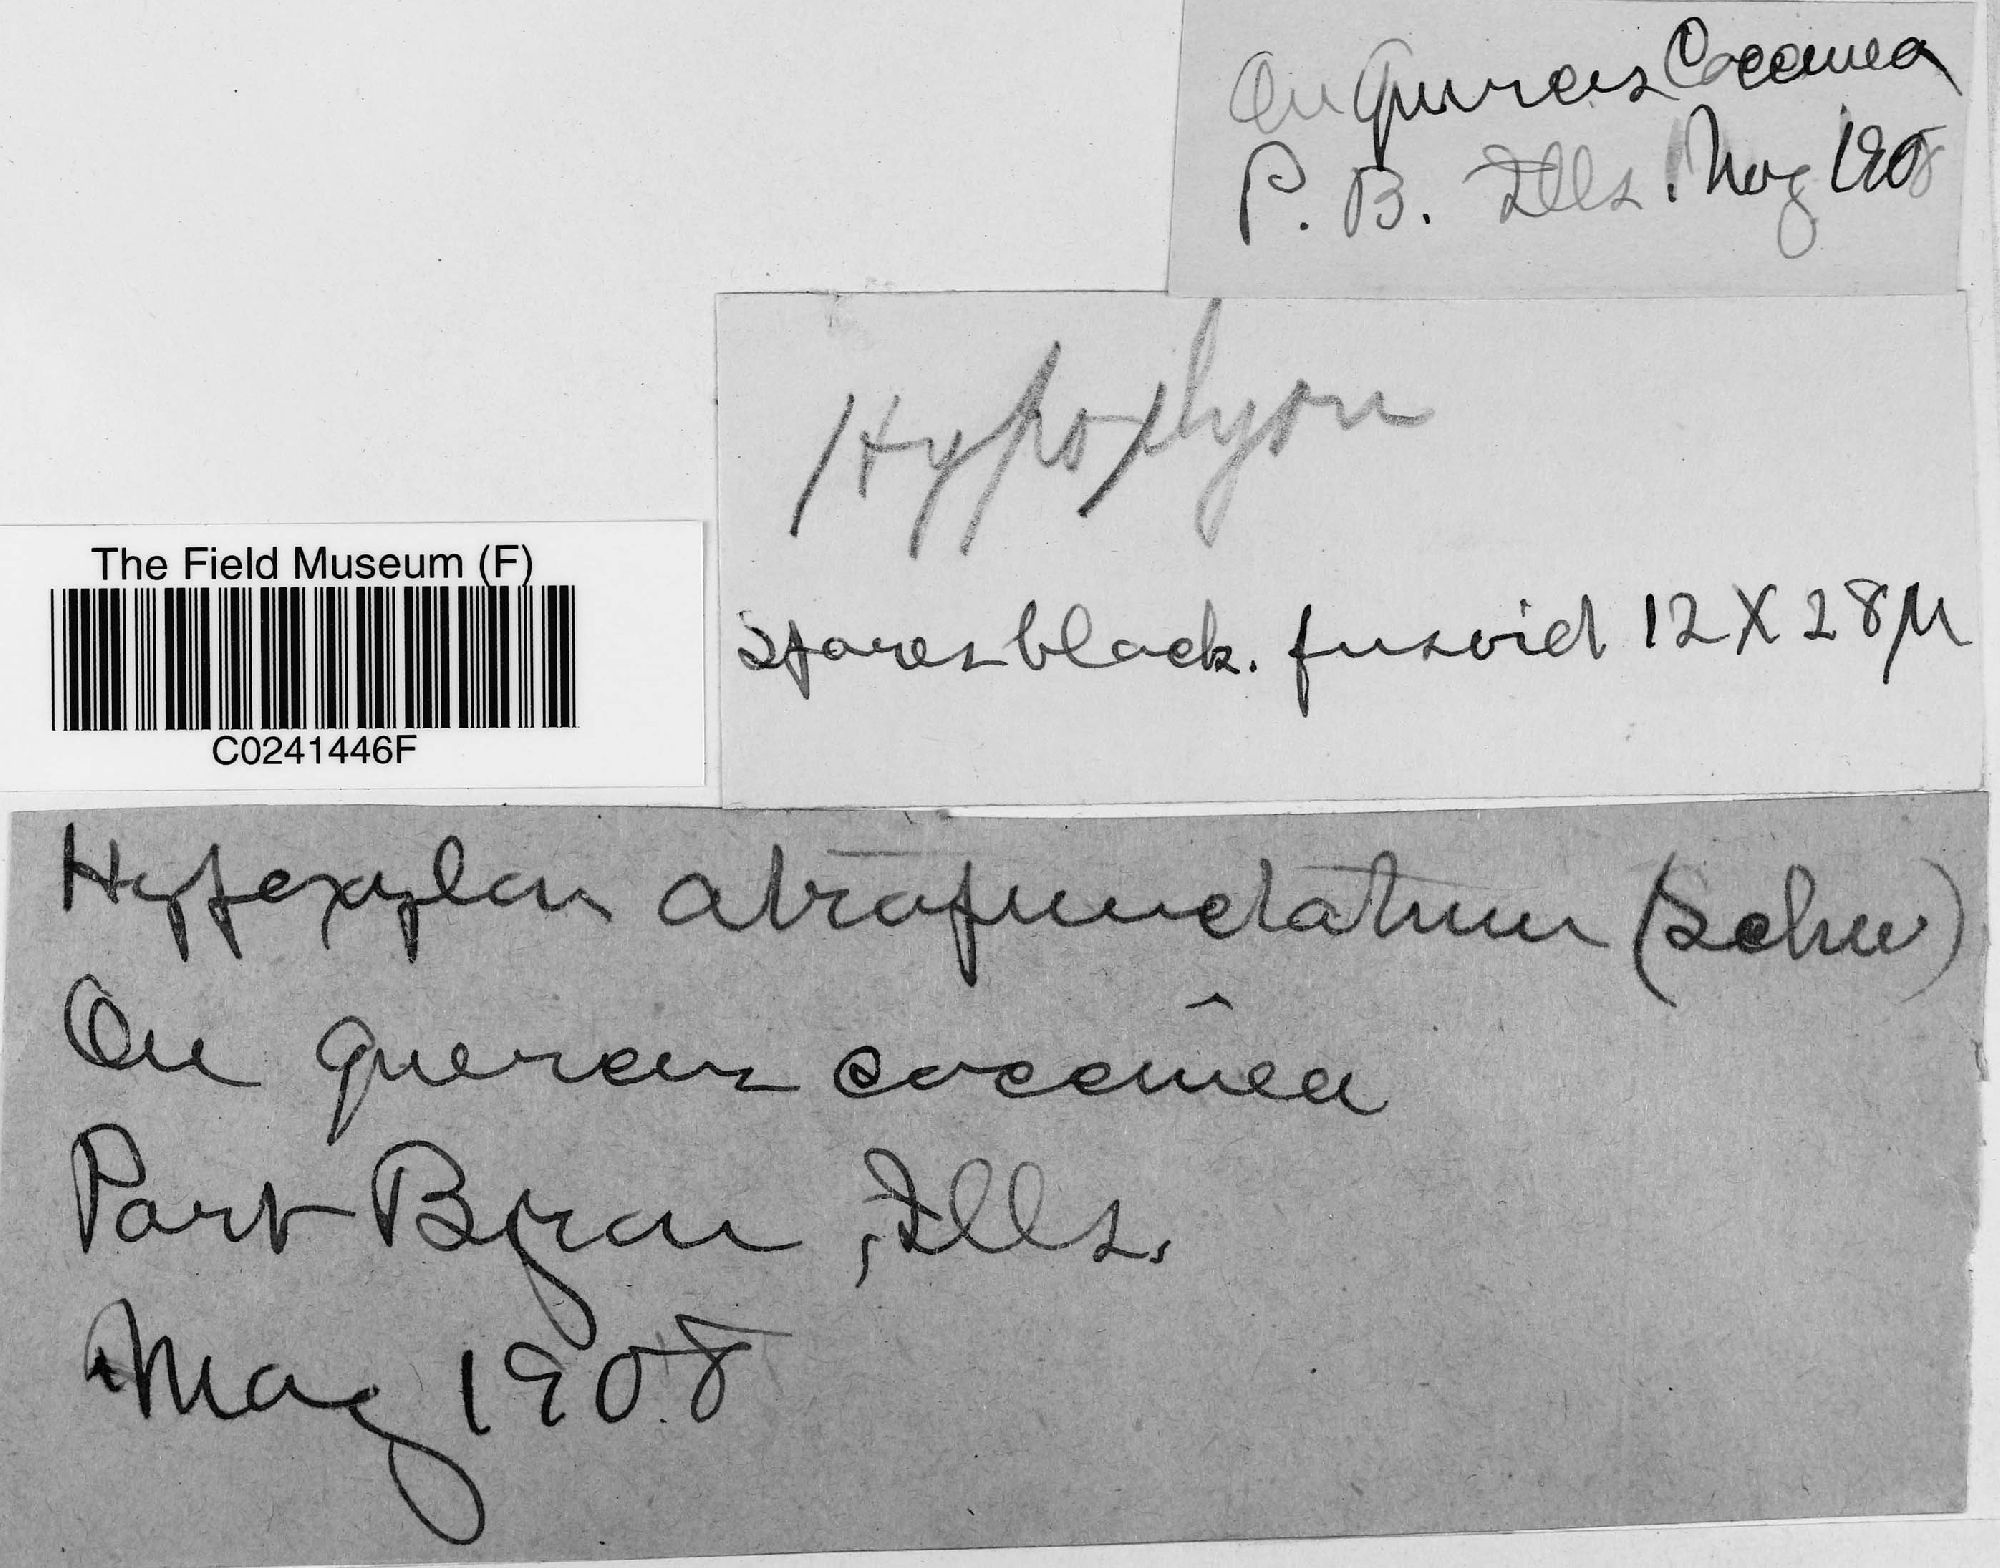 On Quercus Coccinea
P. B. Ills. May 1908
Hypoxylon
spores black. fusoid 12 X 28 µ
The Field Museum (F)
C0241446F
Hypoxylon atropunctatum (Schw)
On quercus coccinea
Port Byron, Ills.
May 1908